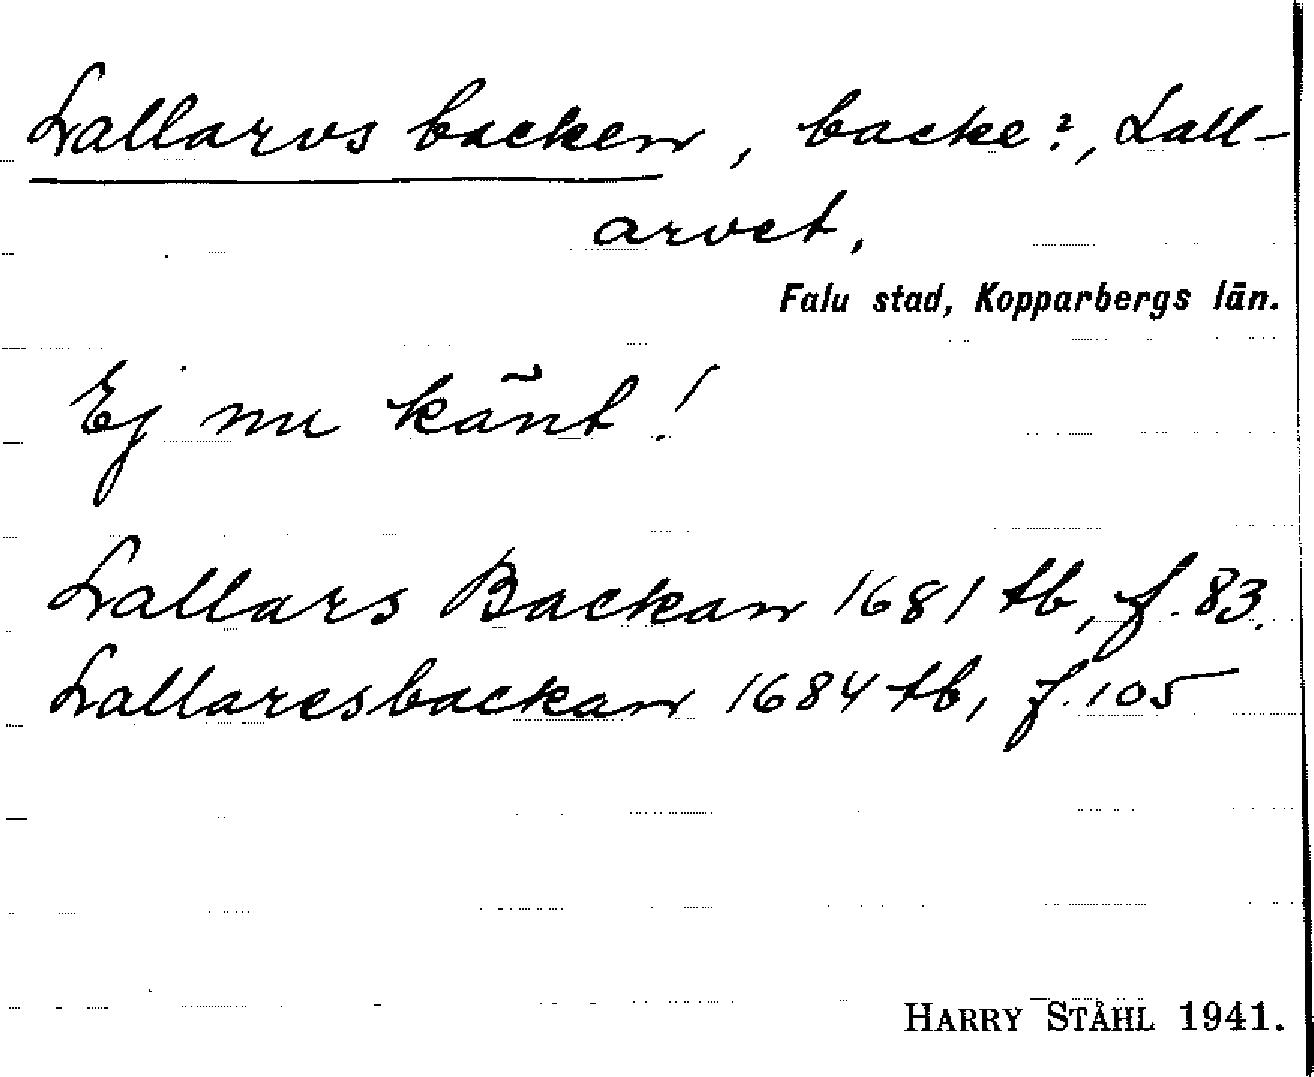 Lallarvsbacken, backe?, Lall-
arvet,
Falu stad, Kopparbergs län.
Ej nu känt!
Lallars Backan 1681 tb, f. 83.
Lallaresbackan 1684 tb, f. 105
HARRY STÅHL 1941.